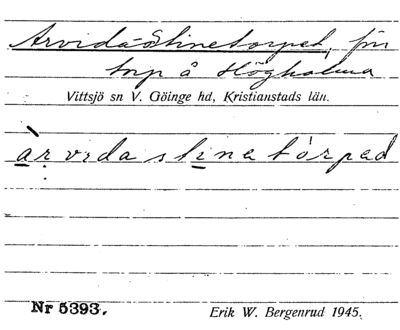 Arvida-Stinetorpet, f.n
torp å Högholma
Vittsjö sn V. Göinge hd, Kristianstads län.
àrvidastinetòrpəd
Nr 5393.
Erik W. Bergenrud 1945.